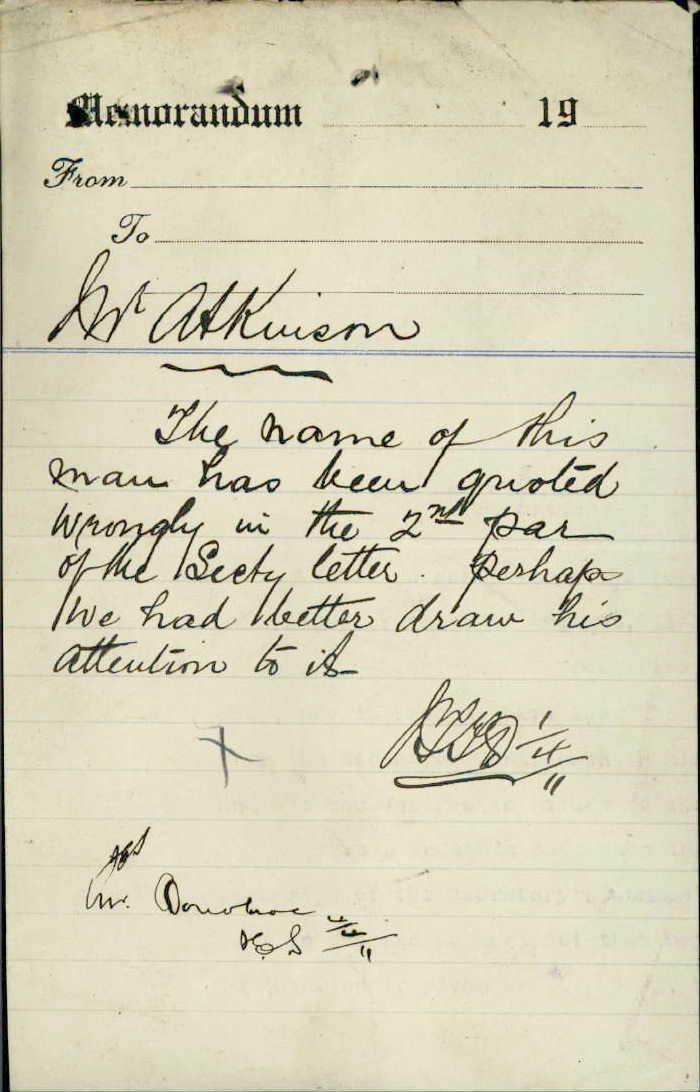 Memorandum 19
From
To
Mr Atkinson
The name of this
man has been quoted
wrongly in the 2nd par
of the Secty letter. Perhaps
we had better draw his
attention to it
1/4/11
Mr. Donohoe
4/4/11